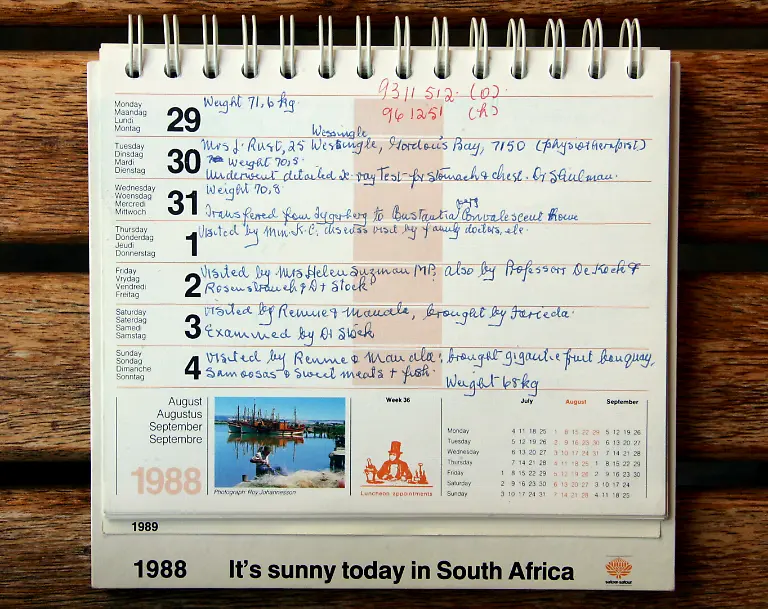 9311 512. (O).
961251 (h)
Monday
Maandag
Lundi
Montag
29
Weight 71,6 kg.
Wessingle
Tuesday
Dinsdag
Mardi
Dienstag
30
Mrs J. Rust, 25 Wessingle, Gordou's Bay, 7150 (physiotherapist)
Weight 70,8.
Underwent detailed x-ray Test for stomach & chest. Dr Shulman.
Wednesday
Woensdag
Mercredi
Mittwoch
31
Weight 70,8.
Transferred from Tygerberg to Constantia Convalescent Home
Thursday
Donderdag
Jeudi
Donnerstag
1
Visited by Min. K.C. discuss visit by family doctors, etc.
Friday
Vrydag
Vendredi
Freitag
2
Visited by Mrs Helen Suzman MP. also by Professors De Kock &
Rosenstrauch & Dr Stock
Saturday
Saterdag
Samedi
Samstag
3
Visited by Rennie & Mandla, brought by Farieda.
Examined by Dr Stock
Sunday
Sondag
Dimanche
Sonntag
4
Visited by Rennie & Mandla; brought gigantic fruit bouquay,
Samoosas & sweet meats + fish.
Weight 68kg
August
Augustus
September
Septembre
1988
Photograph: Roy Johannesson
Week 36
Luncheon appointments
July August September
Monday 4 11 18 25 1 8 15 22 29 5 12 19 26
Tuesday 5 12 19 26 2 9 16 23 30 6 13 20 27
Wednesday 6 13 20 27 3 10 17 24 31 7 14 21 28
Thursday 7 14 21 28 4 11 18 25 1 8 15 22 29
Friday 1 8 15 22 29 5 12 19 26 2 9 16 23 30
Saturday 2 9 16 23 30 6 13 20 27 3 10 17 24
Sunday 3 10 17 24 31 7 14 21 28 4 11 18 25
1989
1988 It's sunny today in South Africa
satour-satoer